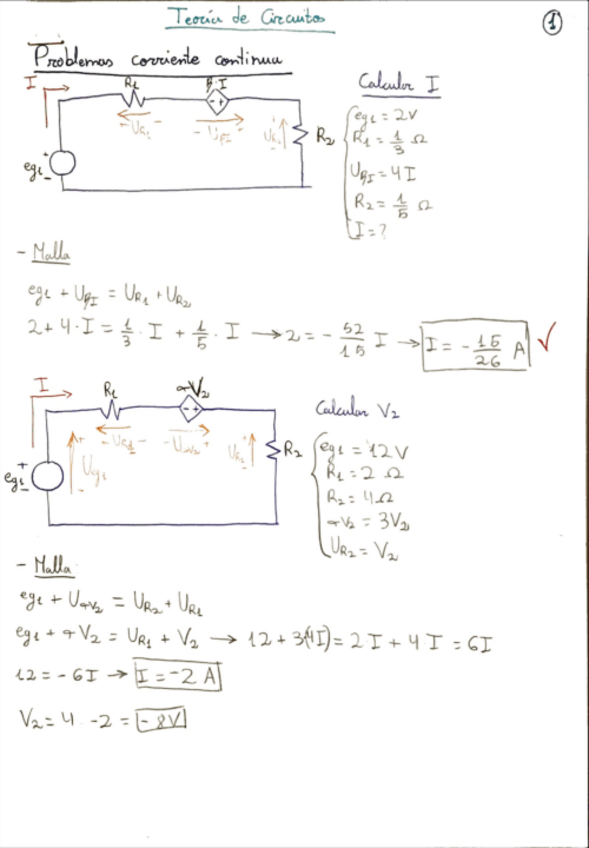 Teoría de Circuitos
1
Problemas corriente continua
I
R1
β·I
- +
- UR1 -
- UβI -
UR2
R2
eg1
+
-
Calcular I
eg1 = 2V
R1 = 1/3 Ω
UβI = 4I
R2 = 1/5 Ω
I = ?
- Malla
eg1 + UβI = UR1 + UR2
2 + 4·I = 1/3 · I + 1/5 · I → 2 = - 52/15 I → I = - 15/26 A ✓
I
R1
αV2
- +
- UR1 -
- UαV2 +
UR2
R2
eg1
+
-
Ug1
Calcular V2
eg1 = 12V
R1 = 2 Ω
R2 = 4Ω
αV2 = 3V2
UR2 = V2
- Malla
eg1 + UαV2 = UR2 + UR1
eg1 + αV2 = UR1 + V2 → 12 + 3(4I) = 2·I + 4·I = 6I
12 = - 6I → I = -2 A
V2 = 4 · -2 = - 8V